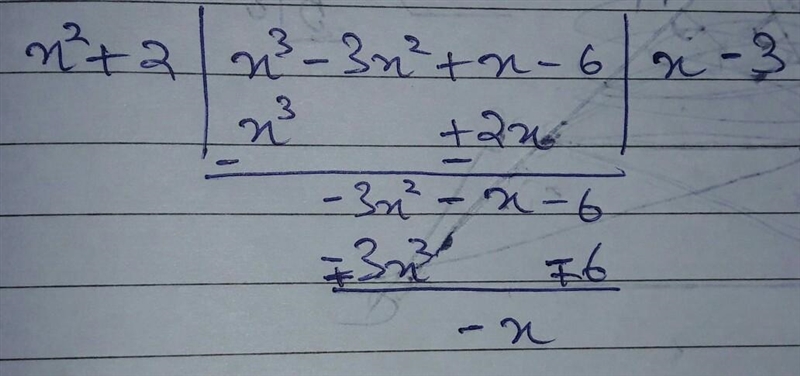 x² + 2 | x³ - 3x² + x - 6 | x - 3
x³ + 2x
- -
-3x² - x - 6
∓3x³ ∓6
- x